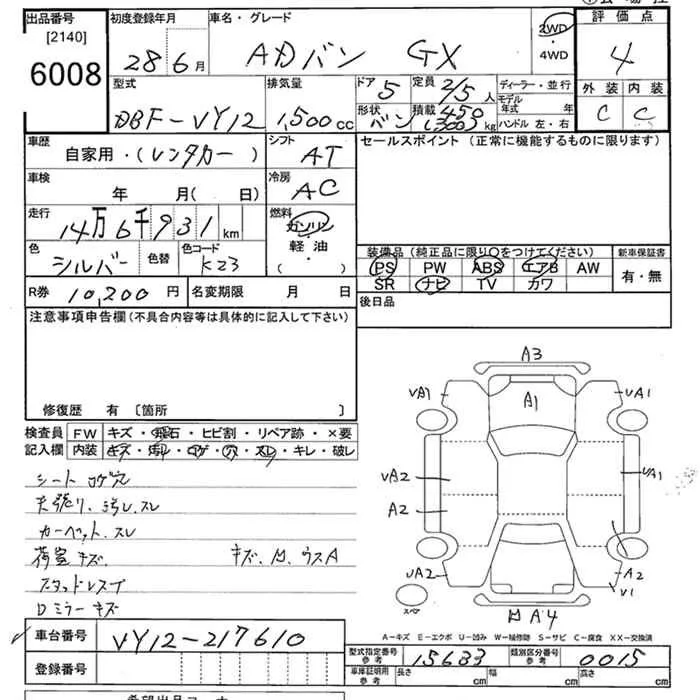 出品番号 初度登録年月 車名・グレード 評価点
[2140]
6008 28年6月 ADバン GX 2WD・4WD 4
型式 排気量 ドア 5 定員 2/5人 ディーラー・並行 外装 内装
DBF-VY12 1,500cc 形状 バン 積載 450 (300) kg モデル年式 年 ハンドル 左・右 C C
車歴 自家用・(レンタカー) シフト AT セールスポイント (正常に機能するものに限ります)
車検 年 月( 日) 冷房 AC
走行 14万6千931km 燃料 ガソリン・軽油・( )
色 シルバー 色替 色コード K23
装備品 (純正品に限り○をつけてください) 新車保証書
PS PW ABS エアB AW 有・無
SR ナビ TV カワ
R券 10,200円 名変期限 月 日 後日品
注意事項申告欄 (不具合内容等は具体的に記入して下さい)
修復歴 有 〔箇所 〕
検査員 FW キズ・飛石・ヒビ割・リペア跡・×要
記入欄 内装 キズ・汚レ・コゲ・穴・スレ・キレ・破レ
シート コゲ穴
天張り、汚レ、スレ
カーペット、スレ
荷室キズ キズ、凹、ウスA
スタッドレスT
Dミラーキズ
A3
VA1 A1 VA1
VA2 VA1
A2
VA2 A2
V1
スペア
凹A4
A-キズ E-エクボ U-凹み W-補修跡 S-サビ C-腐食 XX-交換済
車台番号 VY12-217610
型式指定番号 参考 15633 類別区分番号 参考 0015
登録番号
車庫証明用 参考 長さ cm 幅 cm 高さ cm